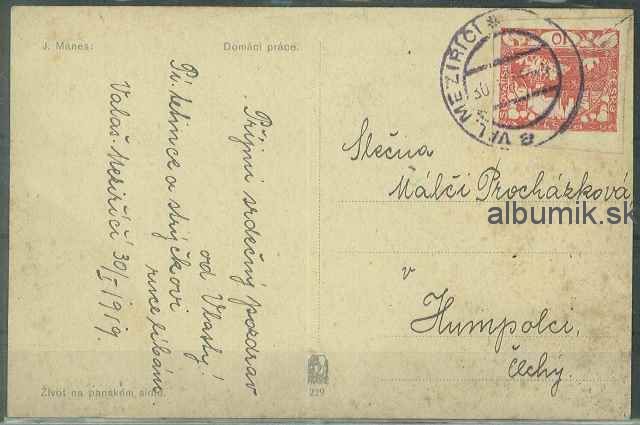 J. Mánes:
Domácí práce.
Přijmi srdečný pozdrav
od Vlasty!
Pí. tetince a strýčkovi
ruce líbáme.
Valaš. Meziříčí 30/I 1919.
Život na panském sídle.
229
VAL. MEZIŘÍČÍ
30
10
Slečna
Málči Procházková
albumik.sk
v
Humpolci,
Čechy.